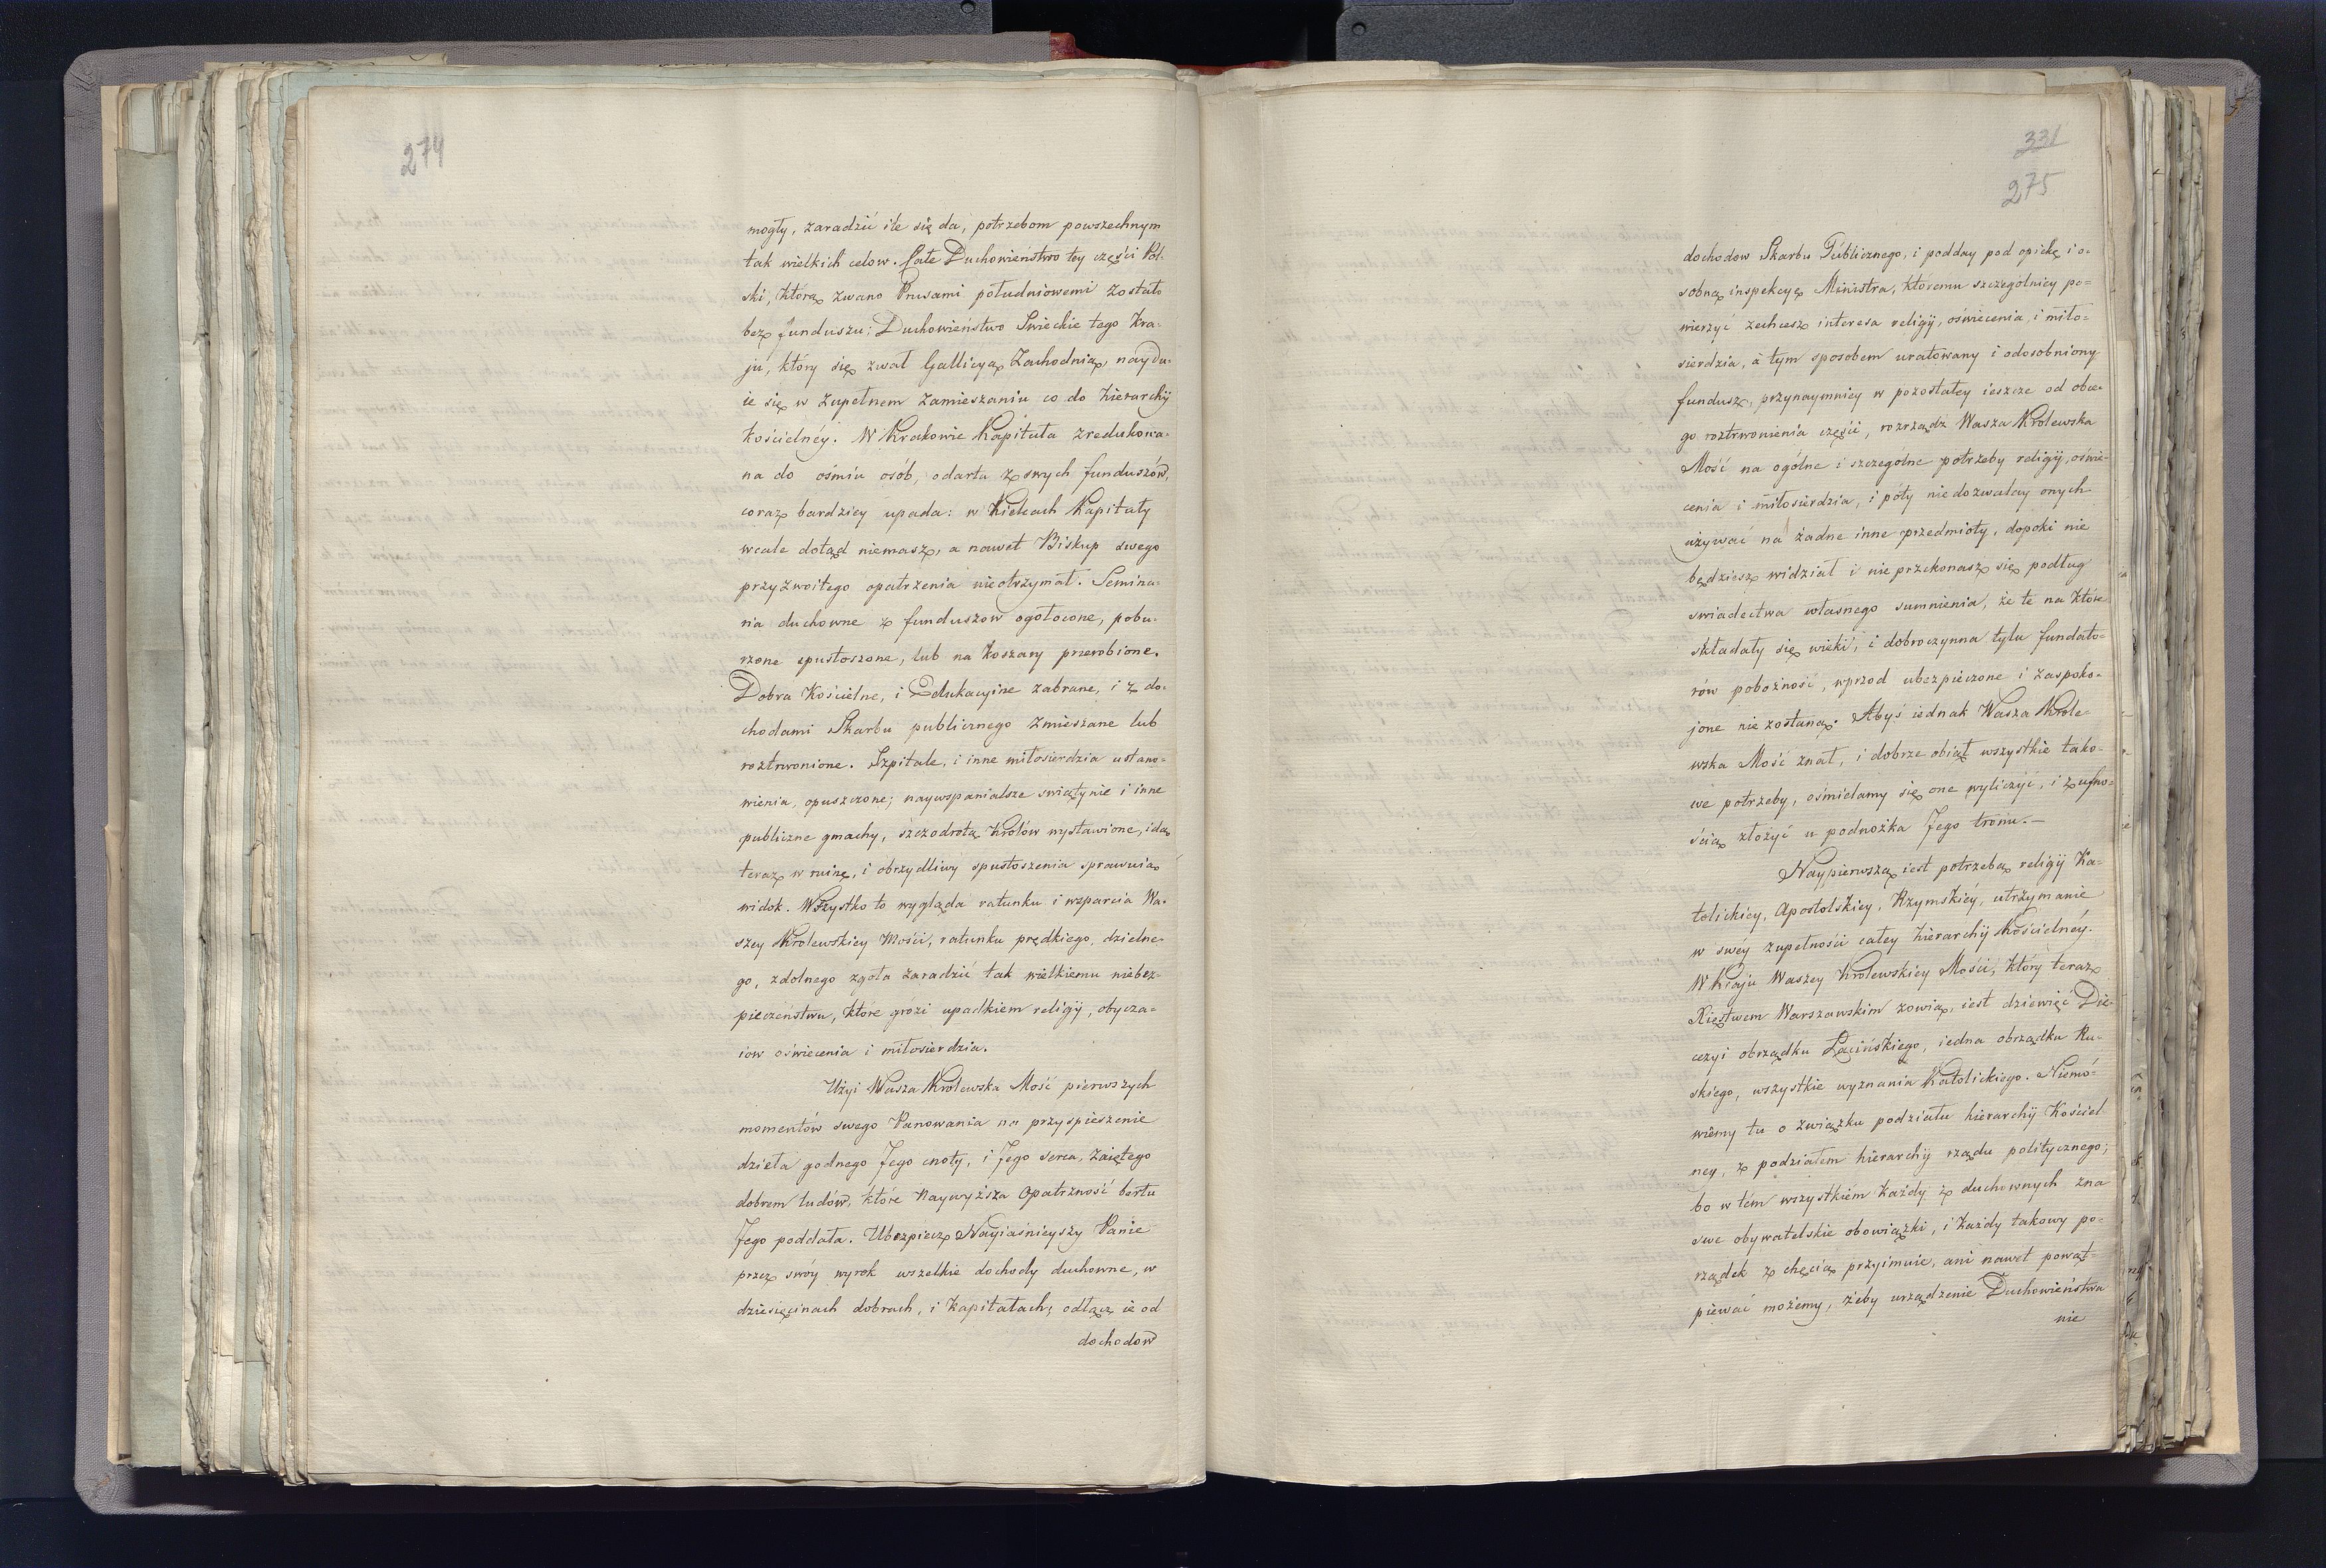 274
mogły, zaradzić ile się da, potrzebom powszechnym
tak wielkich celow. Całe Duchowieństwo tey części Pol-
ski, którą zwano Prusami południowemi zostało
bez funduszu; Duchowieństwo Swieckie tego Kra-
ju, który się zwał Gallicyą Zachodnią, naydu-
ie się w zupełnem zamieszaniu co do hierarchij
kościelnéy. W Krakowie Kapituła zredukowa-
na do ośmiu osób, odarta z swych funduszów,
coraz bardziey upada: w Kielcach Kapituły
wcale dotąd niemasz, a nawet Biskup swego
przyzwoitego opatrzenia nieotrzymał. Semina-
ria duchowne z funduszow ogołocone, pobu-
rzone spustoszone, lub na koszary przerobione.
Dobra Kościelne, i Edukacyine zabrane, i z do-
chodami Skarbu publicznego zmieszane lub
roztrwonione. Szpitale, i inne miłosierdzia ustano-
wienia, opuszczone; naywspanialsze swiątynie i inne
publiczne gmachy, szczodrotą Królów wystawione, idą
teraz w ruinę, i obrzydliwy spustoszenia sprawuią
widok. Wszystko to wygląda ratunku i wsparcia Wa-
szey Krolewskiey Mości, ratunku prędkiego, dzielne-
go, zdolnego zgoła zaradzić tak wielkiemu niebez-
pieczeństwu, które grozi upadkiem religij, obycza-
iow oświecenia i miłosierdzia.
Użyi Wasza Krolewska Mość pierwszych
momentów swego Panowania na przyspieszenie
dzieła godnego Jego cnoty, i Jego serca, zaiętego
dobrem ludów, które Naywyższa Opatrzność berłu
Jego poddała. Ubezpiecz Nayiaśnieyszy Panie
przez swóy wyrok wszelkie dochody duchowne, w
dziesięcinach dobrach, i kapitałach, odłącz ie od
dochodow
331
275
dochodow Skarbu Publicznego, i podday pod opiekę i o-
sobną inspekcyę Ministra, któremu szczególniey po-
wierzyć zechcesz interesa religij, oświecenia, i miło-
sierdzia, a tym sposobem uratowany i odosobniony
fundusz, przynaymniey w pozostałey ieszcze od obce-
go roztrwonienia części, rozrządz Wasza Krolewska
Mość na ogólne i szczegolne potrzeby religij, oświe-
cenia i miłosierdzia, i póty niedozwalay onych
używać na żadne inne przedmioty, dopoki nie
będziesz widział i nie przekonasz się podług
swiadectwa własnego sumnienia, że te na które
składały się wieki, i dobroczynna tylu fundato-
rów pobożność, wprzod ubezpieczone i zaspoko-
jone nie zostaną. Abyś iednak Wasza Krole-
wska Mość znał, i dobrze obiął wszystkie tako-
we potrzeby, ośmielamy się one wyliczyć, i z ufno-
ścią złożyć u podnóżka Jego tronu.—
Naypierwszą iest potrzebą religij Ka-
tolickiey, Apostolskiey, Rzymskiéy, utrzymanie
w swéy zupełności całey hierarchij Kościelnéy.
W Kraju Waszey Krolewskiey Mości, który teraz
Xięstwem Warszawskim zowią, iest dziewięć Die-
cezyi obrządku Łacińskiego, iedna obrządku Ru-
skiego, wszystkie wyznania Katolickiego. Niemó-
wiemy tu o związku podziału hierarchij Kościel
ney, z podziałem hierarchij rządu politycznego;
bo w tém wszystkiém każdy z duchownych zna
swe obywatelskie obowiązki, i każdy takowy po-
rządek z chęcią przyimuie, ani nawet powąt-
piewać możemy, żeby urządzenie Duchowieństwa
nie